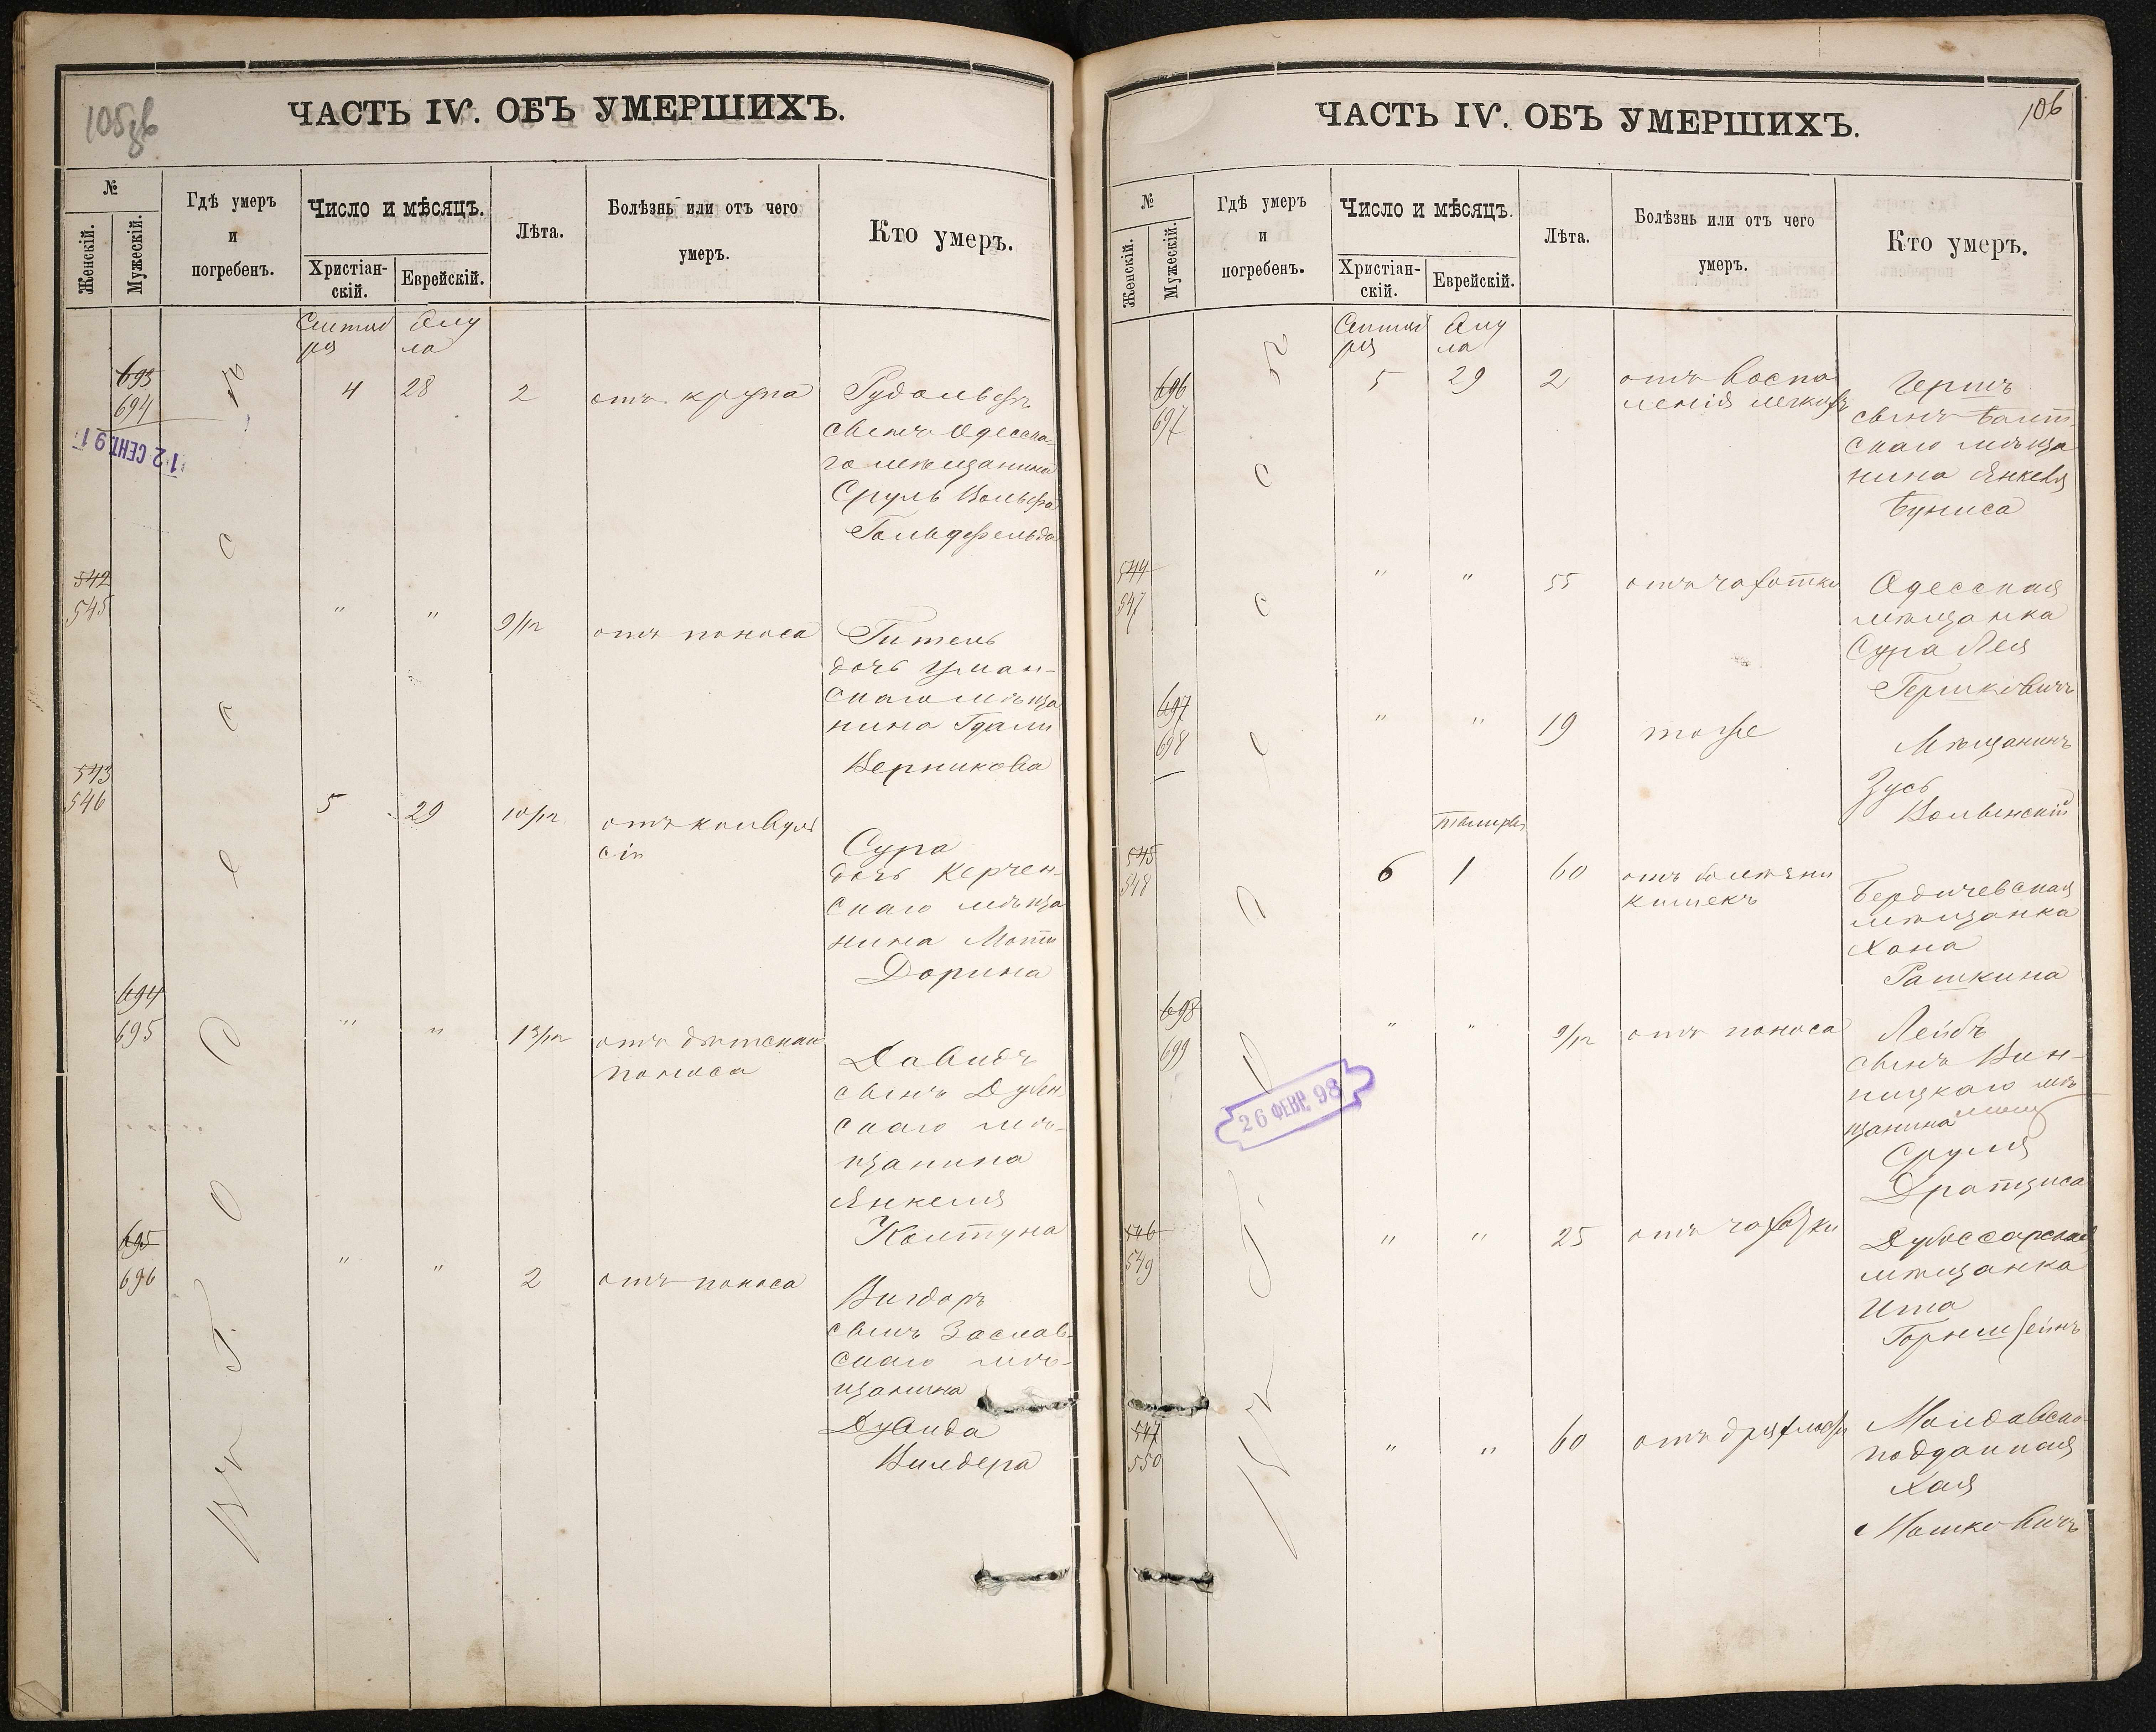 105 зв
ЧАСТЬ IV. ОБЪ УМЕРШИХЪ.
№
Женскій.
Мужескій.
Гдѣ умеръ
и
погребенъ.
Число и мѣсяцъ.
Христіан-
скій.
Еврейскій.
Лѣта.
Болѣзнь или отъ чего
умеръ.
Кто умеръ.
Сентяб
ря
Элу
ла
Въ г. Одессѣ
693
694
12 СЕНТ. 91
4
28
2
отъ крупа
Рудольфъ
сынъ Одесска-
го мѣщанина
Сруль Вольфа
Гольдфельда
542
545
"
"
9/м
отъ поноса
Гитель
дочь Уман-
скаго мѣща
нина Гдали
Верникова
543
546
5
29
10/м
отъ конвуль
сіи
Сура
дочь Керчен-
скаго мѣща
нина Моти
Дорина
694
695
"
"
13/м
отъ дѣтскаго
поноса
Давидъ
сынъ Дубен-
скаго мѣ-
щанина
Янкеля
Колтуна
695
696
"
"
2
отъ поноса
Вигдоръ
сынъ Заслав-
скаго мѣ-
щанина
Дувида
Вилдера
106
ЧАСТЬ IV. ОБЪ УМЕРШИХЪ.
№
Женскій.
Мужескій.
Гдѣ умеръ
и
погребенъ.
Число и мѣсяцъ.
Христіан-
скій.
Еврейскій.
Лѣта.
Болѣзнь или отъ чего
умеръ.
Кто умеръ.
Сентяб
ря
Элу
ла
Въ г. Одессѣ
696
697
5
29
2
отъ воспа
ленія легкихъ
Гершъ
сынъ Балт-
скаго мѣща
нина Янкеля
Буниса
544
547
"
"
55
отъ чахотки
Одесская
мѣщанка
Сура Лея
Гершковичъ
697
698
"
"
19
тоже
Мѣщанинъ
Зусь
Волынскій
545
548
6
1
60
кишекъ
Бердичевская
мѣщанка
Хана
Рашкина
698
699
"
"
9/м
отъ поноса
Лейбъ
сынъ Вин-
ницкаго мѣ
щанина
Сруля
26 ФЕВР. 98
546
549
"
"
25
отъ чахотки
Дубоссарская
мѣщанка
Ита
Горнштейнъ
547
550
"
"
60
отъ дряхлости
Молдавско-
подданная
Хая
Мошковичъ